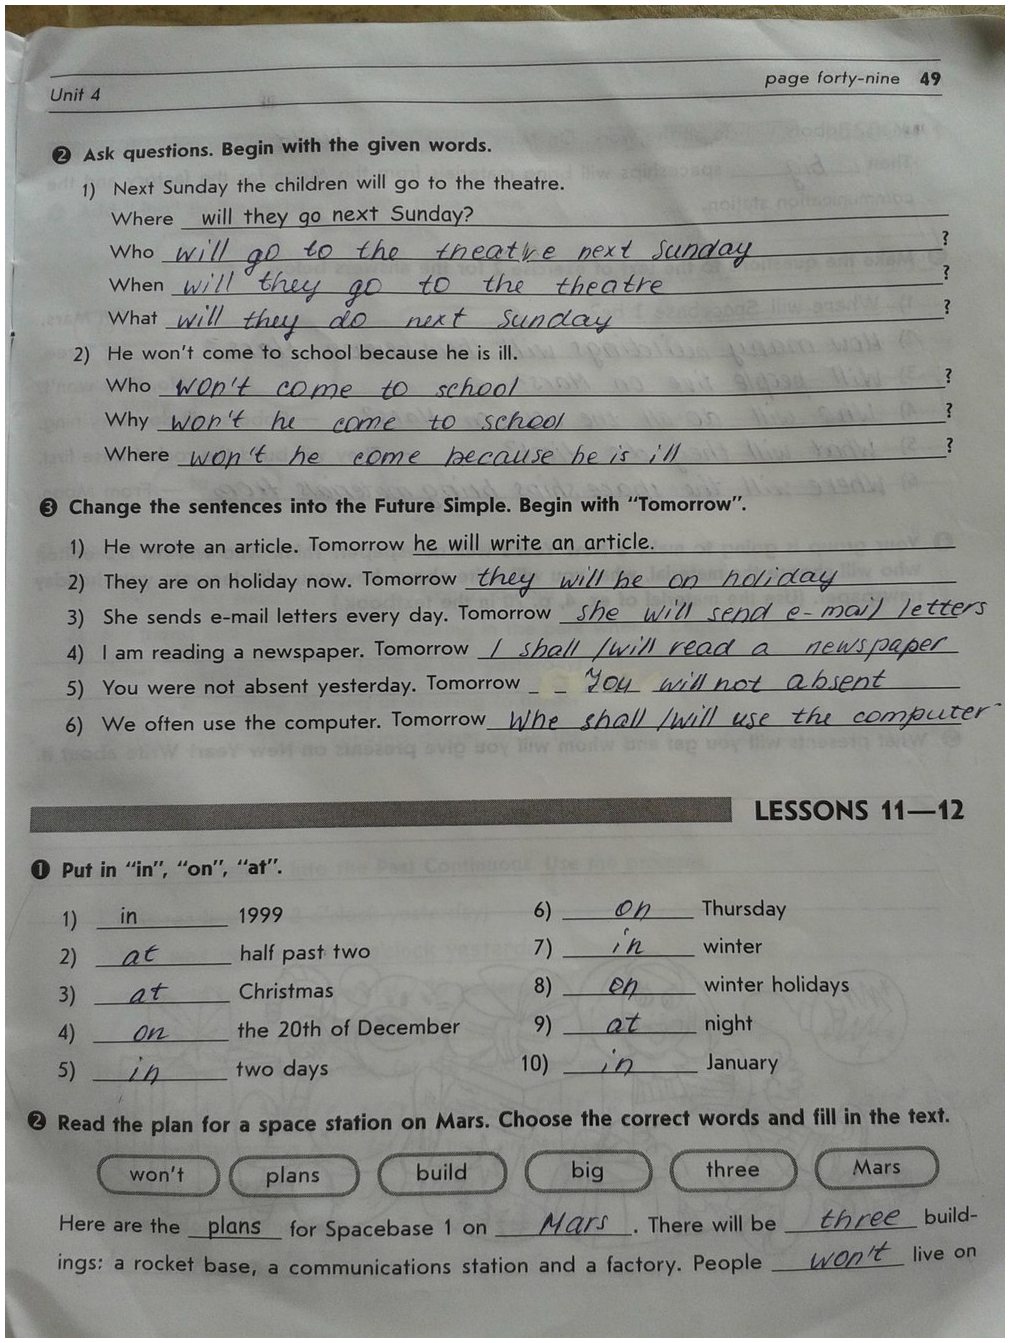 Unit 4
page forty-nine 49
2 Ask questions. Begin with the given words.
1) Next Sunday the children will go to the theatre.
Where will they go next Sunday?
Who will go to the theatre next Sunday ?
When will they go to the theatre ?
What will they do next Sunday ?
2) He won't come to school because he is ill.
Who won't come to school ?
Why won't he come to school ?
Where won't he come because he is ill ?
3 Change the sentences into the Future Simple. Begin with "Tomorrow".
1) He wrote an article. Tomorrow he will write an article.
2) They are on holiday now. Tomorrow they will be on holiday
3) She sends e-mail letters every day. Tomorrow she will send e-mail letters
4) I am reading a newspaper. Tomorrow I shall /will read a newspaper
5) You were not absent yesterday. Tomorrow _ _ You will not absent
6) We often use the computer. Tomorrow Whe shall /will use the computer
LESSONS 11—12
1 Put in "in", "on", "at".
1) in 1999
2) at half past two
3) at Christmas
4) on the 20th of December
5) in two days
6) on Thursday
7) in winter
8) on winter holidays
9) at night
10) in January
2 Read the plan for a space station on Mars. Choose the correct words and fill in the text.
won't plans build big three Mars
Here are the plans for Spacebase 1 on Mars. There will be three build-
ings: a rocket base, a communications station and a factory. People won't live on